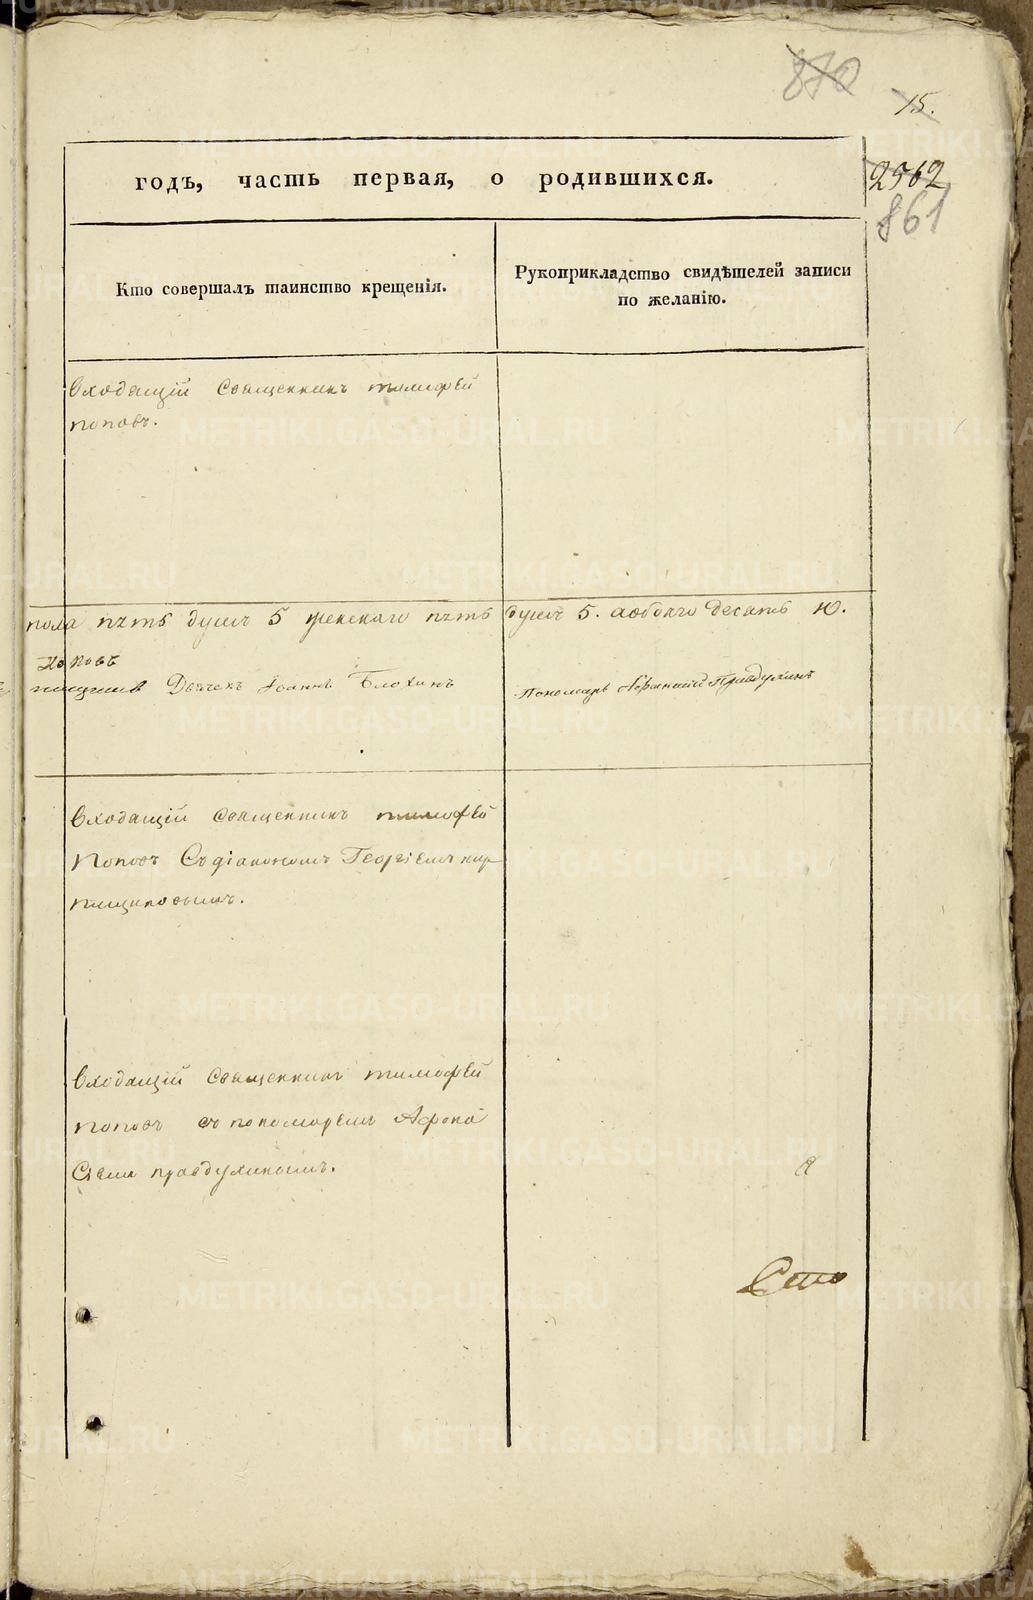 870
15.
годъ, часть первая, о родившихся.
2562
861
Кто совершалъ таинство крещенія.
Рукоприкладство свидѣтелей записи
по желанію.
входящій Священникъ тимофей
поповъ.
пола пять душъ 5 женскаго пять душъ 5. аобоего десять 10.
поповъ
Дьячекъ Іоаннъ Блохинъ
Пономарь Афанасій Правдухинъ
входящій священникъ тимофей
поповъ Съ діакономъ Георгіемъ кир
пищиковымъ.
входящій священникъ тимофей
поповъ съ пономаремъ Афона
сіемъ правдухинымъ.
Сто
METRIKI.GASO-URAL.RU